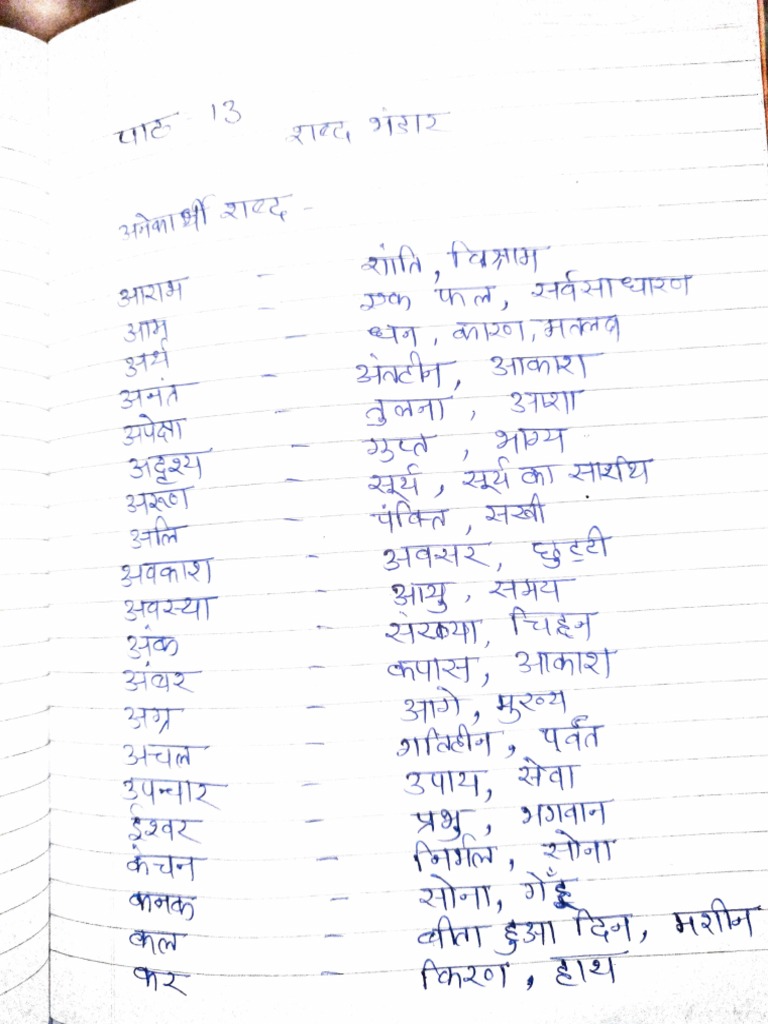 पाठ 13 शब्द भंडार
अनेकार्थी शब्द -
आराम - शांति, विश्राम
आम - एक फल, सर्वसाधारण
अर्थ - धन, कारण, मतलब
अनंत - अंतहीन, आकाश
अपेक्षा - तुलना, आशा
अदृश्य - गुप्त, भाग्य
अरूण - सूर्य, सूर्य का सारथि
अलि - पंक्ति, सखी
अवकाश - अवसर, छुट्टी
अवस्था - आयु, समय
अंक - संख्या, चिह्न
अंबर - कपास, आकाश
अग्र - आगे, मुख्य
अचल - गतिहीन, पर्वत
उपचार - उपाय, सेवा
ईश्वर - प्रभु, भगवान
कंचन - निर्मल, सोना
कनक - सोना, गेँहू
कल - बीता हुआ दिन, मशीन
कर - किरण, हाथ